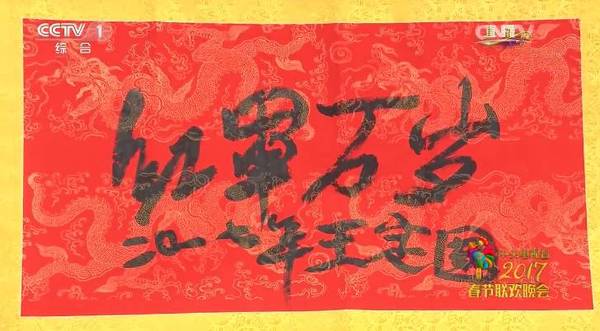 CCTV 1
综合
CNTV
红军万岁
二〇一七年王定国
中央电视台
2017
春节联欢晚会